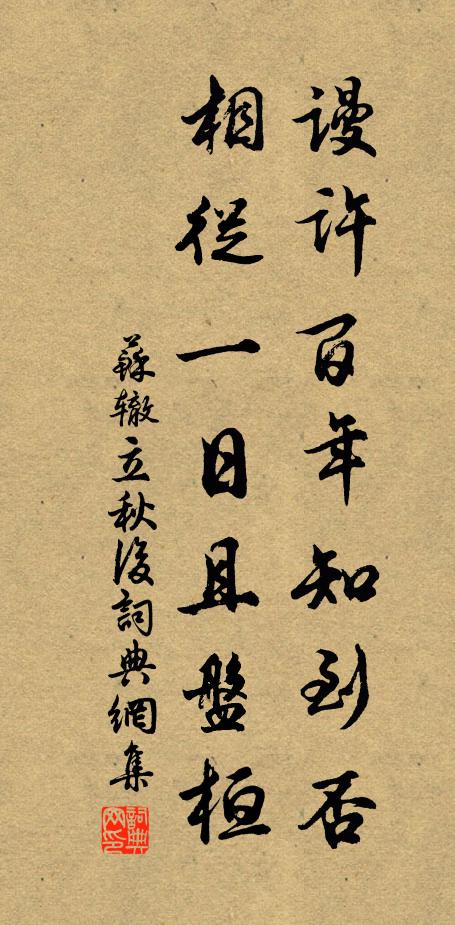 謾許百年知到否
相從一日且盤桓
蘇轍立秋後詞典網集
詞典網印